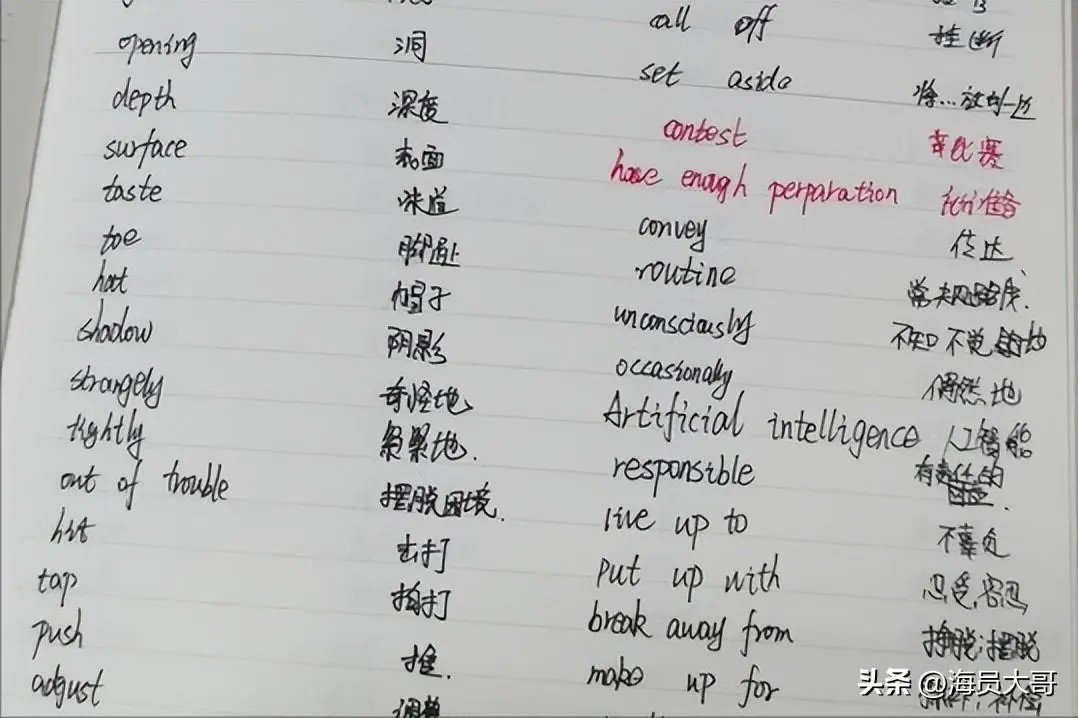 opening 洞
depth 深度
surface 表面
taste 味道
toe 脚趾
hat 帽子
shadow 阴影
strangely 奇怪地
tightly 紧紧地.
out of trouble 摆脱困境.
hit 击打
tap 拍打
push 推.
adjust 调整
call off 挂断
set aside 将…放到一边
contest 比赛
have enough perparation 准备
convey 传达
routine 常规
unconsciously 不知不觉的地
occasionally 偶然地
Artificial intelligence 人工智能
responsible 有责任的
live up to 不辜负
put up with 忍受,容忍
break away from 挣脱;摆脱
make up for 补偿
头条 @海员大哥